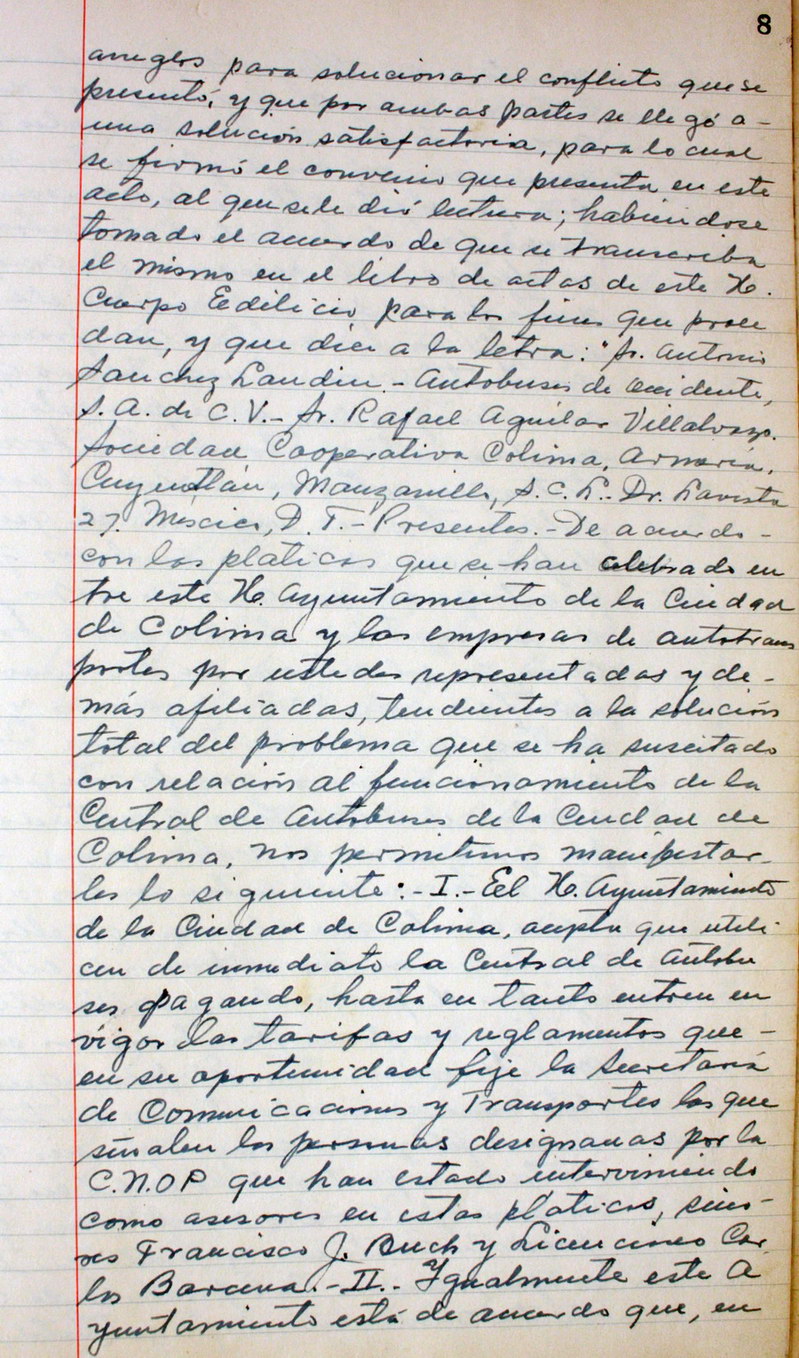 8
arreglos para solucionar el conflicto que se
presentó, y que por ambas partes se llegó a -
una solución satisfactoria, para lo cual
se firmó el convenio que presenta en este
acto, al que se le dió lectura; habiendose
tomado el acuerdo de que se transcriba
el mismo en el libro de actas de este H.
Cuerpo Edilicio para los fines que proce
dan, y que dice a la letra: "Sr. Antonio
Sanchez Landin.- Autobuses de Occidente,
S. A. de C. V.- Sr. Rafael Aguilar Villalvazo.
Sociedad Cooperativa Colima, Armeria,
Cuyutlán, Manzanillo, S. C. L.- Dr. Lavista
27. Mexico, D. F.- Presentes.- De acuerdo -
con las platicas que se han celebrado en
tre este H. Ayuntamiento de la Ciudad
de Colima y las empresas de autotrans
portes por ustedes representadas y de -
más afiliadas, tendientes a la solución
total del problema que se ha suscitado
con relación al funcionamiento de la
Central de Autobuses de la Ciudad de
Colima, nos permitimos manifestar-
les lo siguiente:- I.- El H. Ayuntamiento
de la Ciudad de Colima, acepta que utili
cen de inmediato la Central de Autobu
ses pagando, hasta en tanto entren en
vigor las tarifas y reglamentos que -
en su oportunidad fije la Secretaría
de Comunicaciones y Transportes las que
señalen las personas designadas por la
C.N.O.P que han estado interviniendo
como asesores en estas platicas, seño-
res Francisco J. Buch y Licenciado Car
los Barcena.- II.- Igualmente este A
yuntamiento está de acuerdo que, en